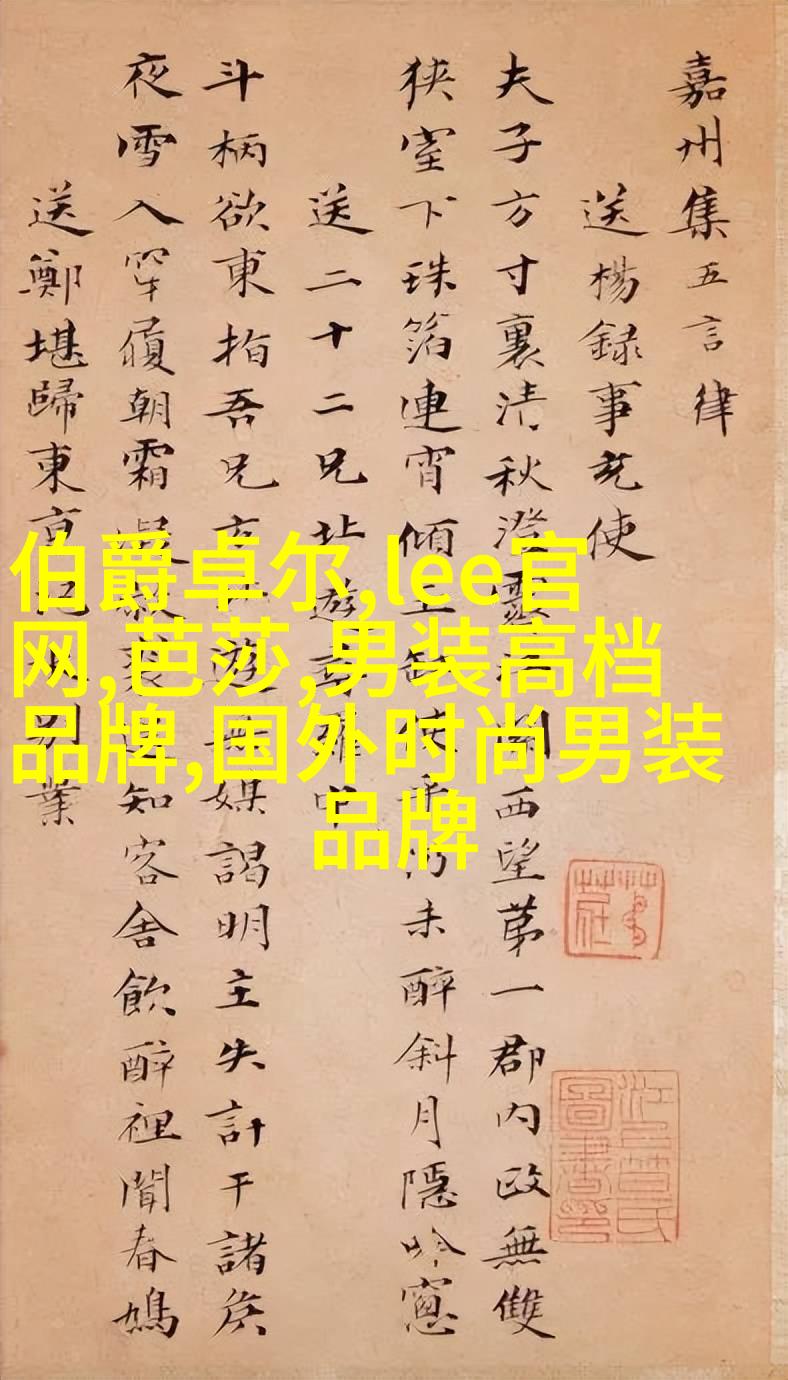 嘉州集五言律
送楊録事充使
夫子方寸裏清秋澄關西望第一郡内政無雙
狹室下珠箔連宵傾使乎仍未醉斜月隱吟窻
送二十二兄北遊羅中
斗柄欲東指吾兄遊無媒謁明主失計干諸侯
夜雪入穿履朝霜裘知客舍飲醉裡聞春鳩
送鄭堪歸東京業
伯爵卓尔,lee官
网,芭莎,男装高档
品牌,国外时尚男装
品牌